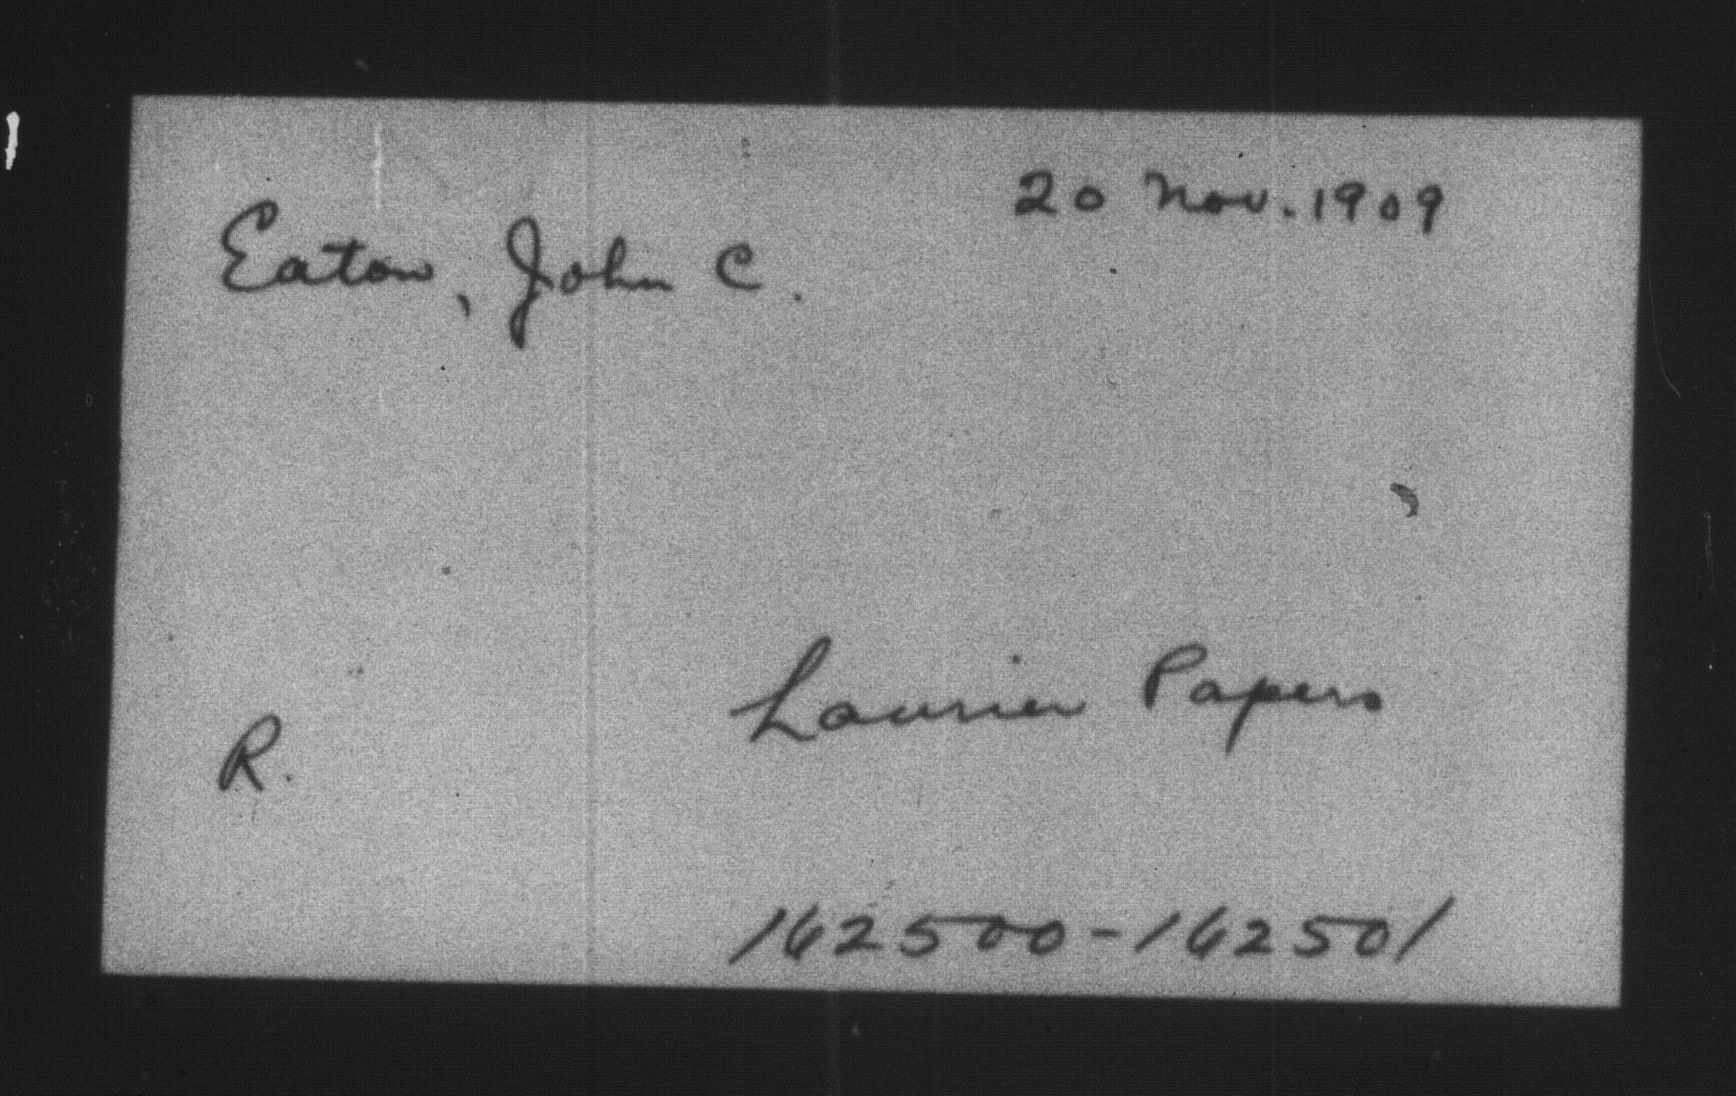 20 Nov. 1909
Eaton, John C.
Laurier Papers
R.
162500-162501